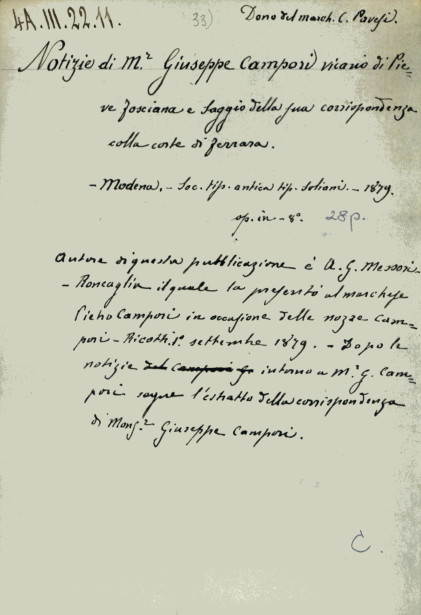 4A.III.22.11.
33)
Dono del march. C. Pavesi.
Notizie di M.r Giuseppe Campori vicario di Pie=
ve Fosciana e saggio della sua corrispondenza
colla corte di Ferrara.
- Modena. - Soc. tip. antica tip. Soliani. - 1879.
op. in - 8°. 28 p.
Autore di questa pubblicazione è A. G. Messori-
- Roncaglia il quale la presentò al marchese
Pietro Campori in occasione delle nozze Cam=
pori - Ricotti 1° settembre 1879. - Dopo le
notizie intorno a M.r G. Cam=
pori segue l'estratto della corrispondenza
di Mong.r Giuseppe Campori.
C.